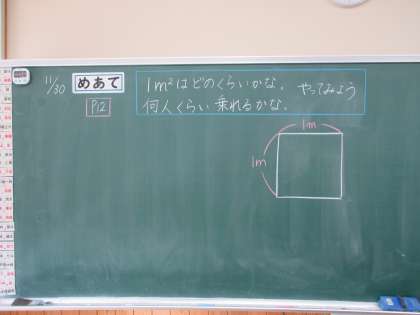 11/30
めあて
P12
1m²はどのくらいかな。
何人くらい乗れるかな。
やってみよう
1m
1m